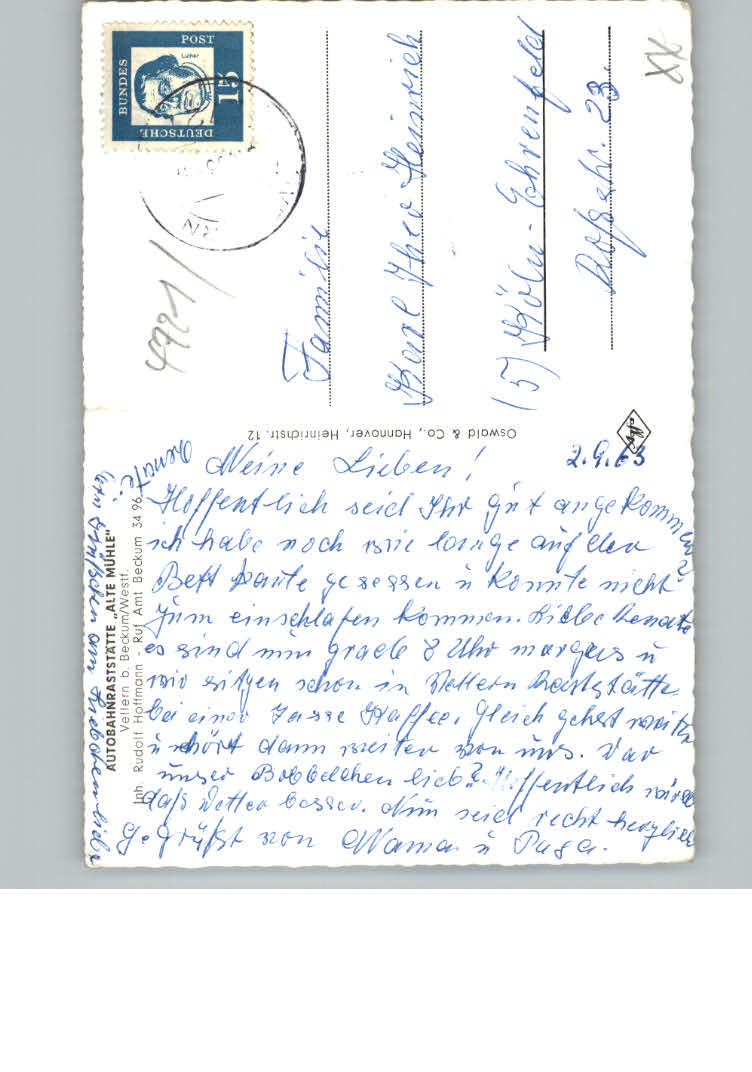 2.9.63
Meine Lieben!
Hoffentlich seid Ihr gut angekommen
ich habe noch wie lange auf der
Bett kante gesessen u konnte nicht
zum einschlafen kommen. Liebe Renate
es sind nun grade 8 Uhr morgens u
wir sitzen schon in Vellern Raststätte
bei einer Tasse Kaffee. Gleich gehts weiter
u ihr hört dann weiter von uns. War
unser Bobbelchen lieb? Hoffentlich wird
daß Wetter besser. Nun seid recht herzlich
gegrüßt von Mama u Papa.
Renate
AUTOBAHNRASTSTÄTTE „ALTE MÜHLE"
Vellern b. Beckum/Westf.
Inh. Rudolf Hoffmann - Ruf Amt Beckum 34 96
Oswald & Co., Hannover, Heinrichstr. 12
Agfa
DEUTSCHE
BUNDES
POST
15
Luther
4721/
XX
Familie
Karl Theo Heinrich
(5) Köln-Ehrenfeld
Roßstr. 23.